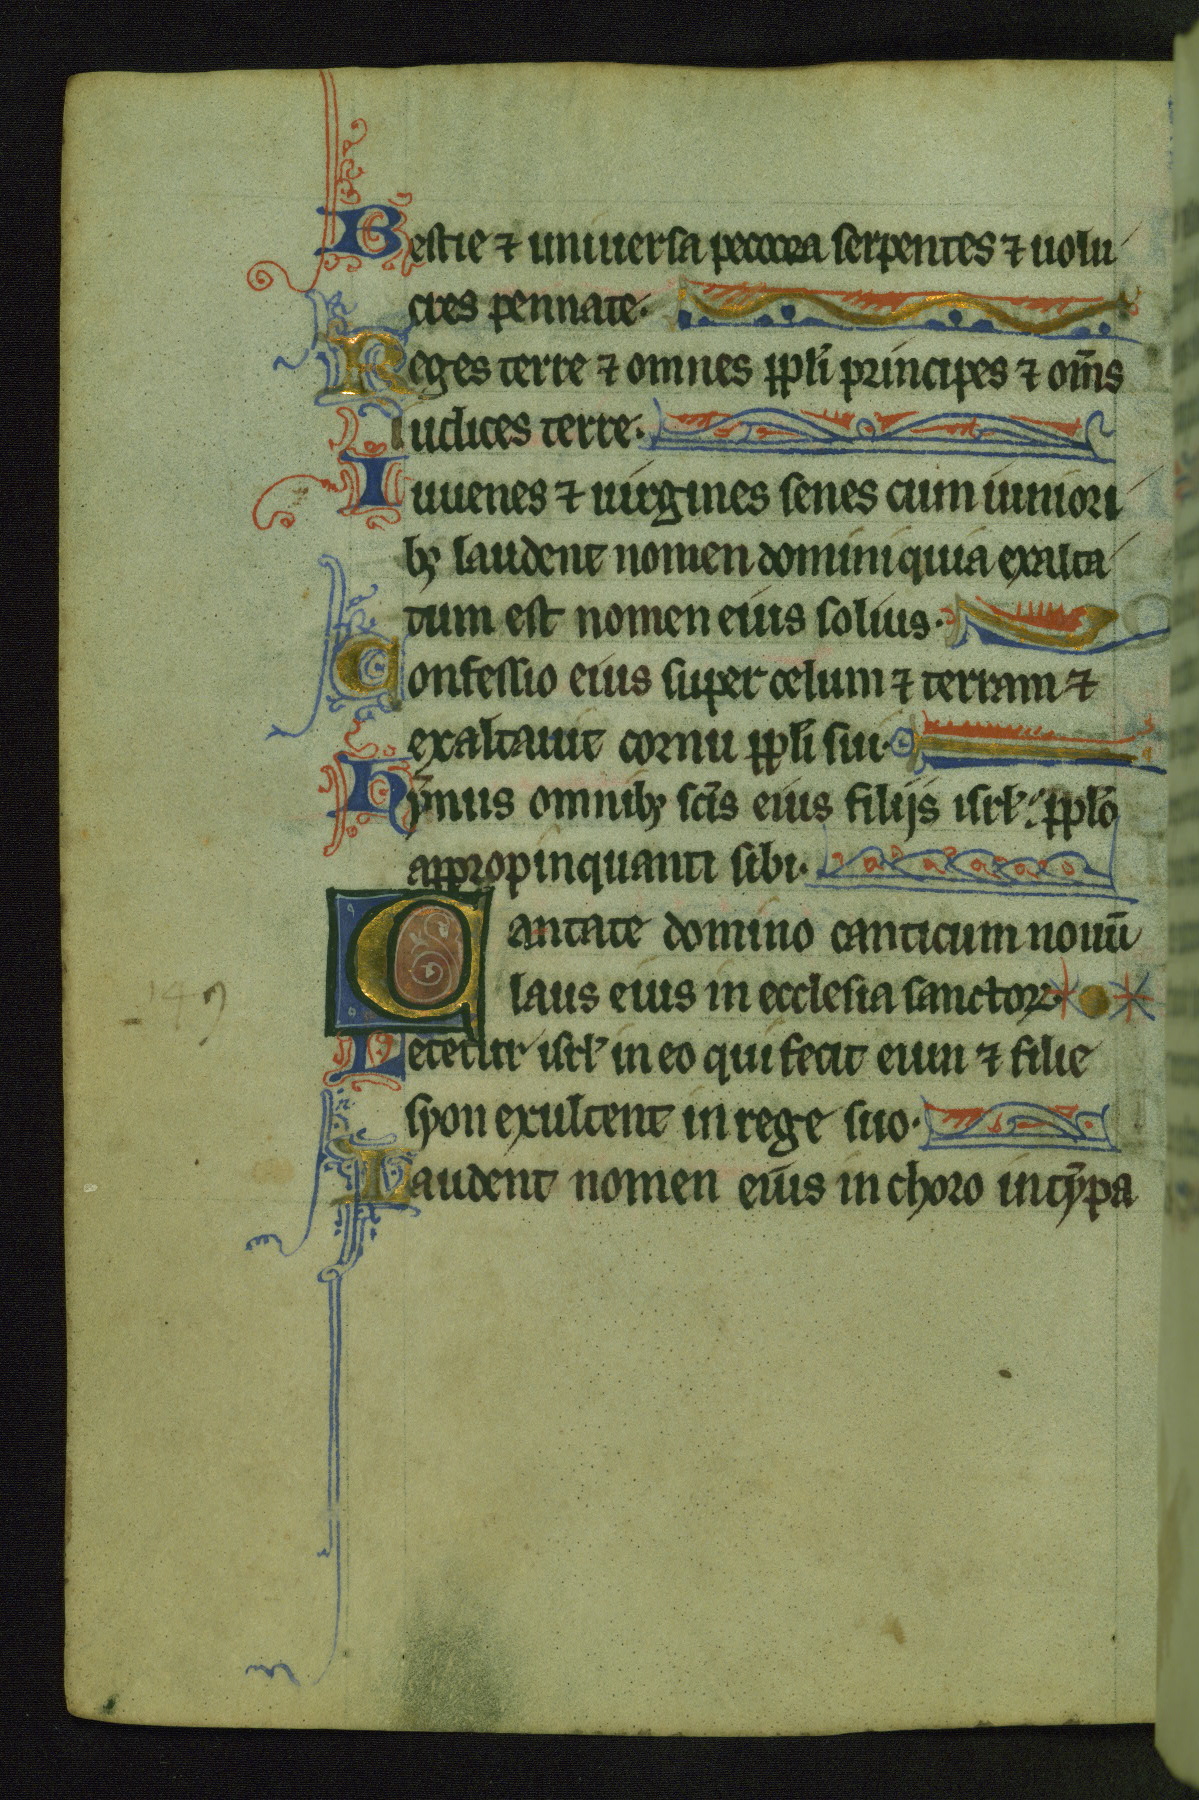 Bestie ⁊ uniuersa peccora serpentes ⁊ uolu
cres pennate.
Reges terre ⁊ omnes ppl̄i principes ⁊ om̄s
iudices terre.
Iuuenes ⁊ uirgines senes cum iuniori
bꝫ laudent nomen domini quia exalta
tum est nomen eius solius.
Confessio eius super celum ⁊ terram ⁊
exaltauit cornu ppl̄i sui.
Hymnus omnibꝫ sc̄is eius filijs isrl̄. ppl̄o
appropinquanti sibi.
Cantate domino canticum nouū
laus eius in ecclesia sanctoꝝ.
149
Letetur isrl̄ in eo qui fecit eum ⁊ filie
syon exultent in rege suo.
Laudent nomen eius in choro in tȳpa